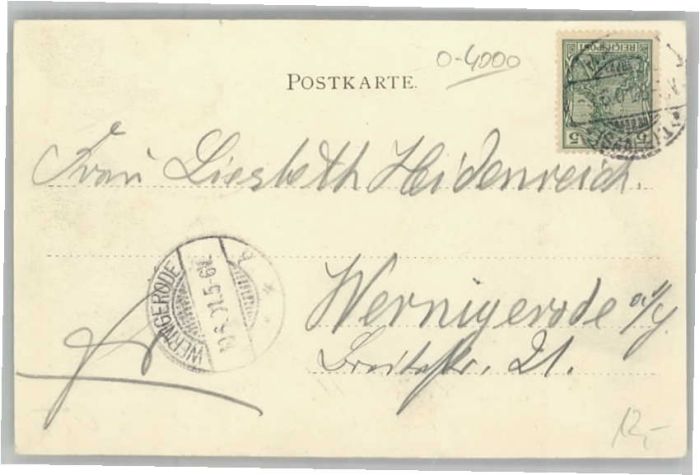 0-4000
POSTKARTE.
REICHSPOST
5 5
Frau Liesbeth Heidenreich.
WERNIGERODE
Wernigerode a/H.
Breitestr. 21.
12,-